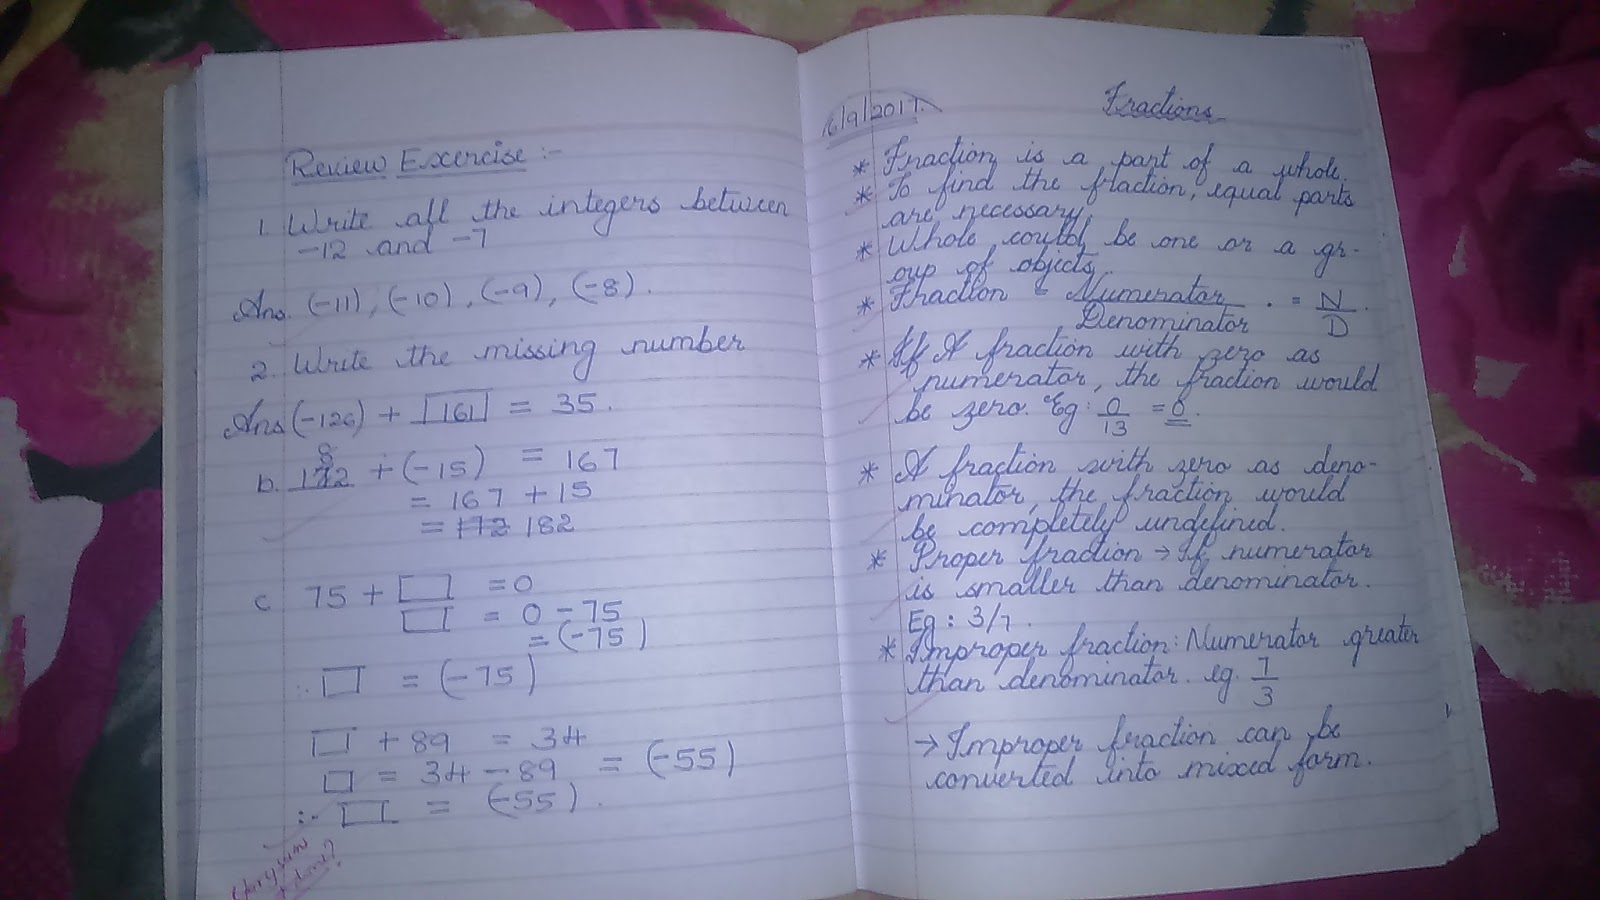 Review Excercise :-
1. Write all the integers between
-12 and -7
Ans. (-11), (-10), (-9), (-8).
2. Write the missing number
Ans (-126) + 161 = 35.
b. 182 + (-15) = 167
= 167 + 15
= 172 182
c 75 + □ = 0
□ = 0 - 75
= (-75)
∴ □ = (-75)
□ + 89 = 34
□ = 34 - 89 = (-55)
∴ □ = (-55).
6/9/2017.
Fractions
* Fraction is a part of a whole.
* To find the fraction, equal parts
are necessary.
* Whole could be one or a gr-
oup of objects.
* Fraction = Numerator/Denominator . = N/D.
* If A fraction with zero as
numerator, the fraction would
be zero. Eg: 0/13 = 0
* A fraction with zero as deno-
minator, the fraction would
be completely undefined.
* Proper fraction → If numerator
is smaller than denominator.
Eg: 3/7.
* Improper fraction: Numerator greater
than denominator. eg. 7/3
→ Improper fraction can be
converted into mixed form.